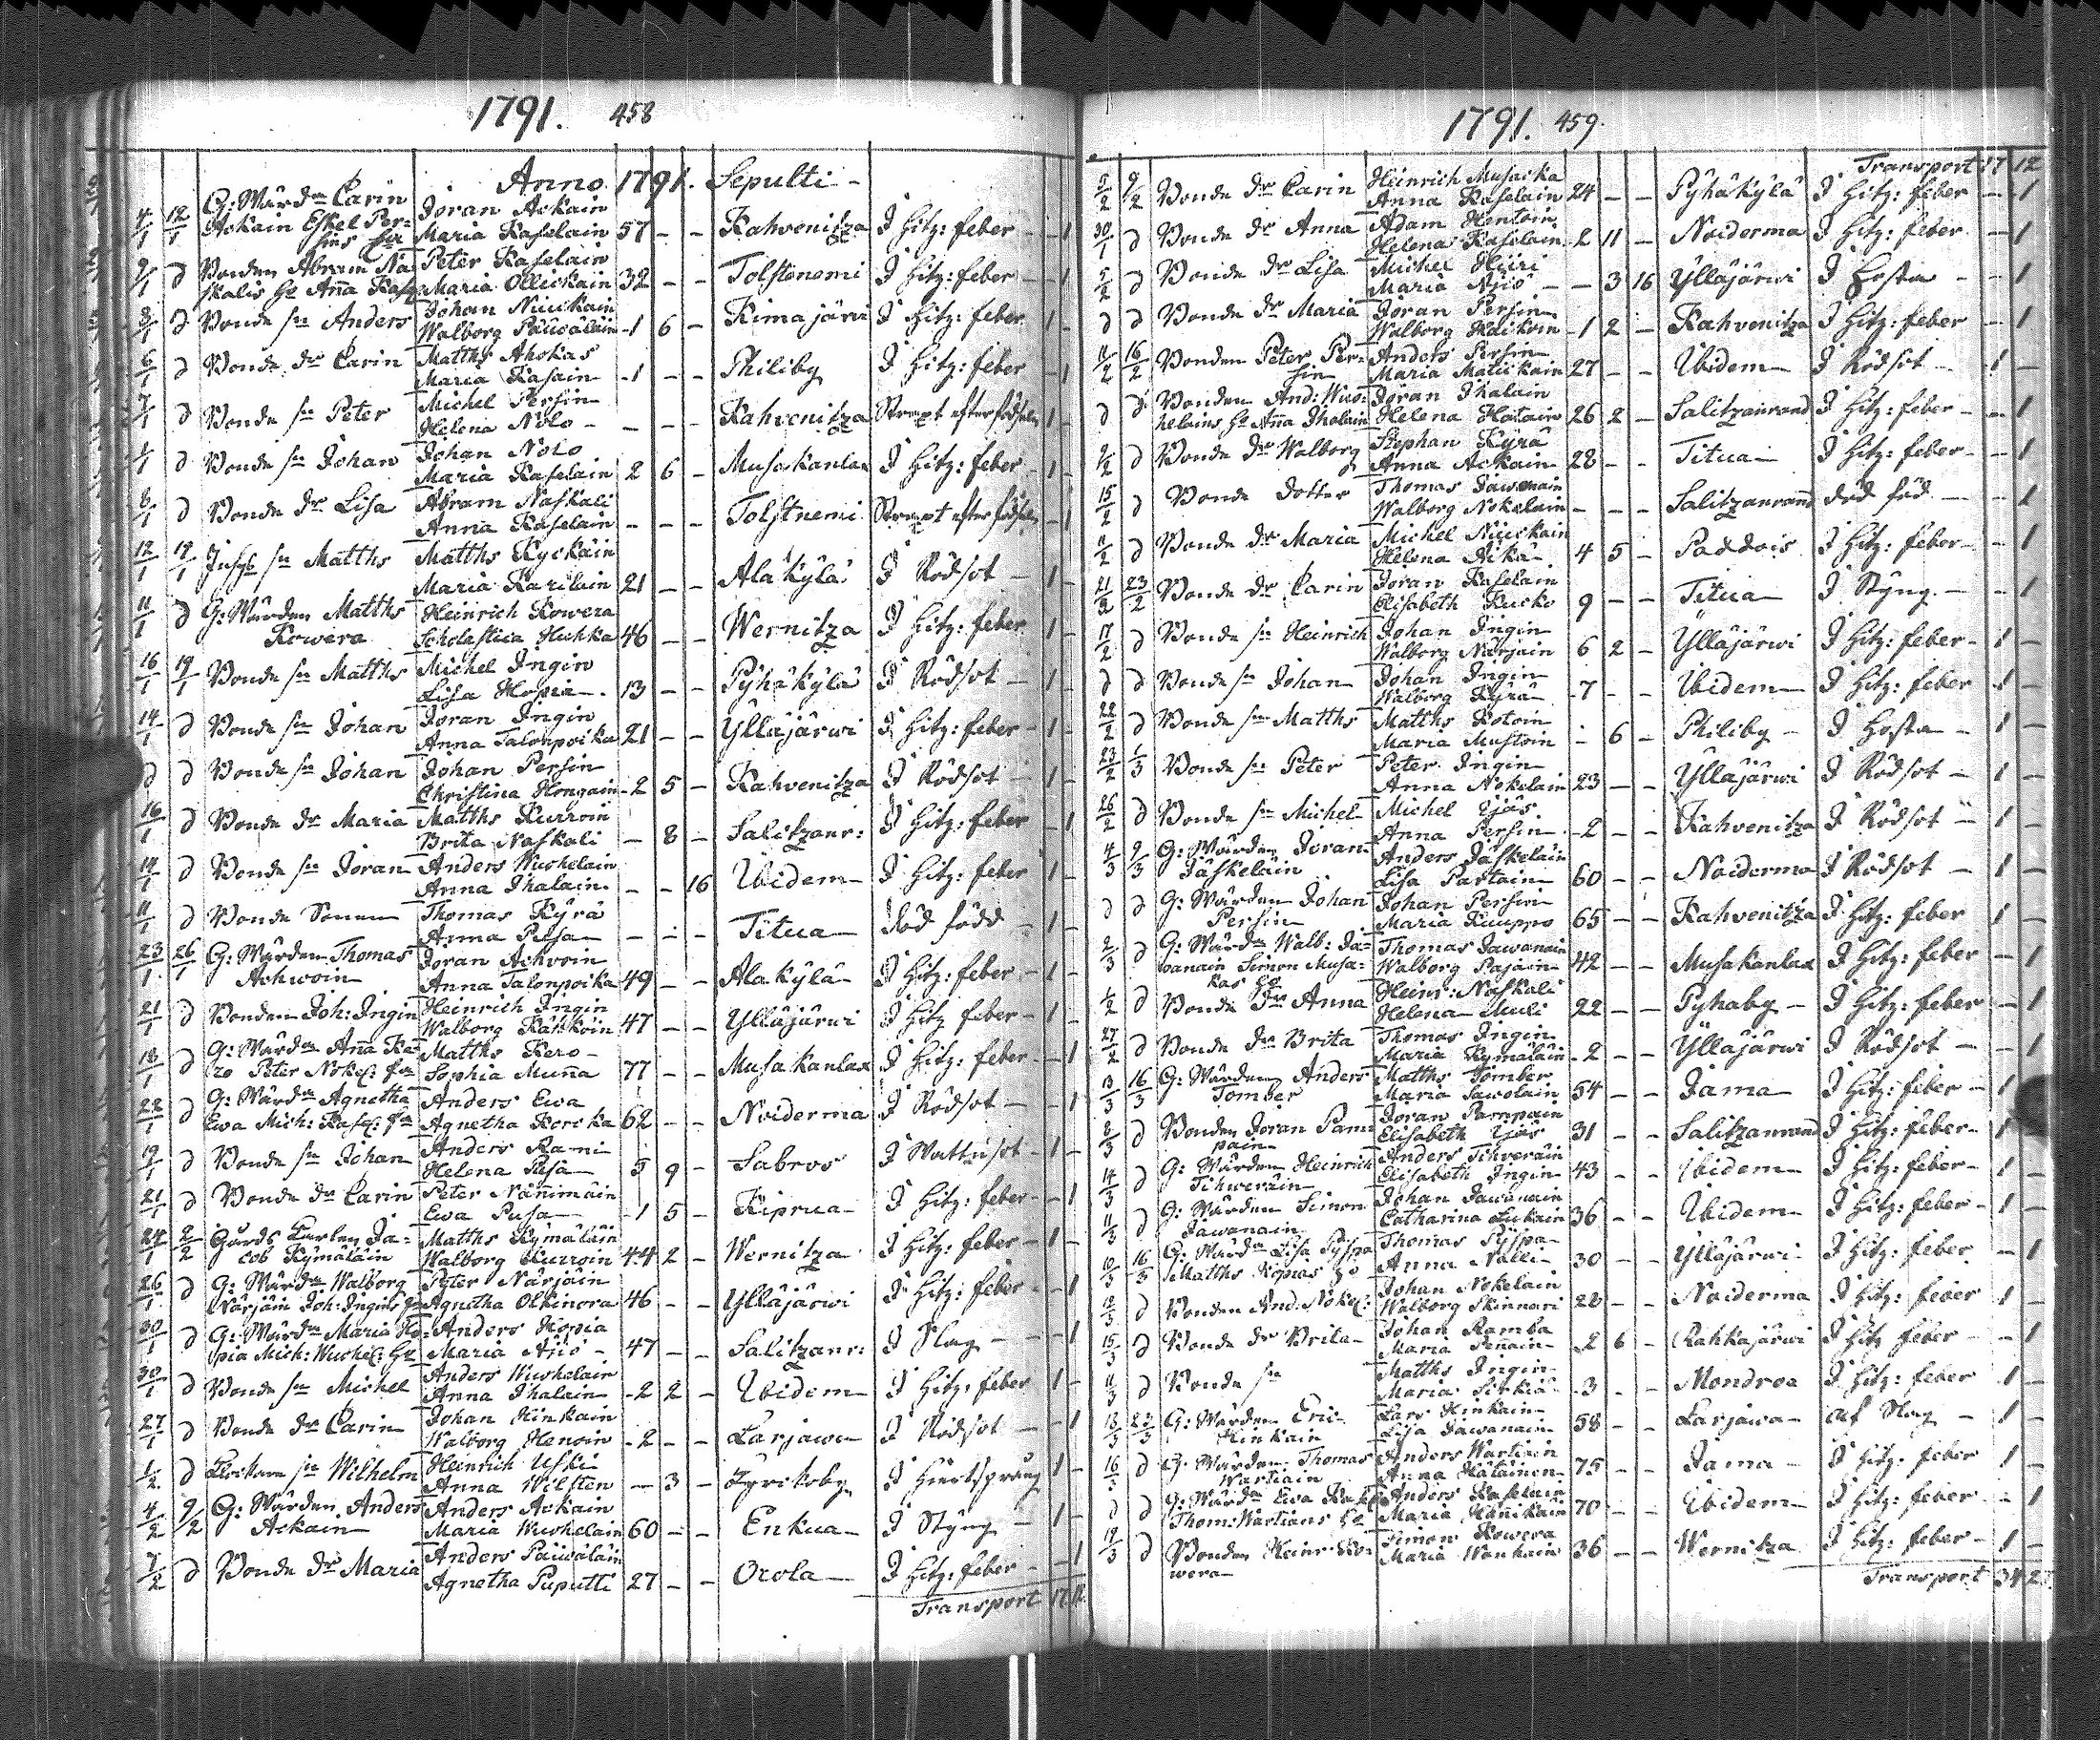 1791. 458
Anno 1791. Sepulti -
4/1 12/1 G: Wärd Carin Joran Ackain
Ackain Eskel Per= Maria Kaselain 57 - - Kahvenitza J Hitz: feber - 1
9/1 d Bonden Abram Na Peter Kaselain
skalis Anna Maria Ollickain 32 - - Tolstenemi J Hitz: feber - 1
8/1 d Bonde sn Anders Johan Nuickain
Walborg Päiwäläin -1 6 - Kimajärvi J Hitz: feber 1 -
6/1 d Bonde dr Carin Matths Ahokas
Maria Kasain -1 - - Philiby J Hitz: feber - 1
7/1 d Bonde sn Peter Michel Persin
Helena Nolo - - - - Kahvenitza Strapt efter födseln 1 -
4/1 d Bonde sn Johan Johan Nolo
Maria Kaselain 2 6 - Musakanlax J Hitz: feber - 1 -
8/1 d Bonde dr Lisa Abram Naskali
Anna Kaselain - - - Tolstnemi Strapt efter födseln - 1
12/1 19/1 Inhys sn Matths Matths Kyckäin
Maria Karilain 21 - - Alakylä J Rödsot - 1 -
11/1 d G: Wärden Matths Heinrich Kowera
Kowera Scholastica Huhka 46 - - Wernitza J Hitz: feber 1 -
16/1 19/1 Bonde sn Matths Michel Ingin
Lisa Hopia - 13 - - Pyhäkylä J Rödsot - 1 -
14/1 d Bonde sn Johan Joran Ingin
Anna Talonpoika 21 - - Ylläjärwi J Hitz: feber - 1 -
d d Bonde sn Johan Johan Persin
Christina Hongain -2 5 - Kahvenitza J Rödsot - 1 -
16/1 d Bonde dr Maria Matths Kurroin
Brita Naskali - 8 - Salitzanr: J Hitz: feber - 1
14/1 d Bonde sn Joran Anders Wuohelain
Anna Ihalain - - 16 Ibidem - J Hitz: feber 1 -
11/1 d Bonde Sonen Thomas Kyrä
Anna Pusa - - - - Titua - död född - 1 -
23/1 26/1 G: Wärden Thomas Joran Achvoin
Achwoin Anna Talonpoika 49 - - Alakylä - J Hitz: feber - 1 -
21/1 d Bonden Joh: Ingin Heinrich Ingin
Walborg Käcköin 47 - - Ylläjärwi J Hitz feber - 1 -
18/1 d G: Wärd Anna Ke= Matths Kero -
ro Peter Nokel: Sophia Munna 77 - - Musakanlax J Hitz: feber - 1
22/1 d G: Wärd Agnetha Anders Ewa
Ewa Mich: Kasel: Agnetha Korcka 62 - - Noiderma J Rödsot - - 1
19/1 d Bonde sn Johan Anders Rami
Helena Pusa 5 9 - Sabros J Wattusot - 1 -
21/1 d Bonde dr Carin Peter Nännimäin
Ewa Pusa - 1 5 - Kiprua - J Hitz: feber - 1
24/1 2/2 Gårds Karlen Ja= Matths Kymäläin
cob Kymäläin Walborg Kurroin 44 2 - Wernitza J Hitz: feber - 1 -
26/1 d G: Wärd Walborg Peter Närjäin
Närjäin Joh: Ingins Agnetha Olkinora 46 - - Ylläjärwi J Hitz: feber - 1
30/1 d G: Wärd Maria Ho= Anders Hopia
pia Mich: Wuohel: Maria Äjiö - 47 - - Salitzanr: J Slag - - 1
30/1 d Bonde sn Michel Anders Wuohelain
Anna Ihalain - 2 2 - Ibidem J Hitz: feber 1 -
27/1 d Bonde dr Carin Johan Hinkain
Walborg Henoin - 2 - - Larjawa J Rödsot - 1
1/2 d Klockare sn Wilhelm Heinrich Uski
Anna Wilsten - 3 - Kyrckoby J Hiertsprång 1 -
4/2 9/2 G: Wärden Anders Anders Ackain
Ackain Maria Wuohelain 60 - - Enkua - J Styng - 1 -
7/2 d Bonde dr Maria Anders Päiwäläin
Agnetha Puputti 27 - - Orola - J Hitz: feber - 1
Transport 17 12
1791. 459.
Transport 17 12
5/2 9/2 Bonde dr Carin Heinrich Musacka
Anna Kaselain 24 - - Pyhäkylä J Hitz: feber - 1
30/1 d Bonde dr Anna Adam Hentoin
Helena Kaselain 2 11 - Noiderma J Hitz: feber - 1
5/2 d Bonde dr Lisa Michel Hijri
Maria Äjiö - - 3 16 Ylläjärwi J Hosta - - 1
d d Bonde dr Maria Joran Persin
Walborg Häickoin - 1 2 - Kahvenitza J Hitz: feber - 1
11/2 16/2 Bonden Peter Per= Anders Persin
sin Maria Matickain 27 - - Ibidem - J Rödsot - 1 -
d d Bonden And: Wuo= Joran Ihalain
helains Anna Ihalain Helena Hatain 26 2 - Salitzanrand J Hitz: feber - 1
9/2 d Bonde dr Walborg Stephan Kyrä
Anna Ackain 28 - - Titua - J Hitz: feber - 1
15/2 d Bonde dotter Thomas Jawanain
Walborg Nokelain - - - Salitzanrand död föd - - 1
11/2 d Bonde dr Maria Michel Nuickain
Helena Äckä - 4 5 - Paddois J Hitz: feber - 1
21/2 23/2 Bonde dr Carin Joran Kaselain
Elisabeth Kucko 9 - - Titua - J Styng - - 1
17/2 d Bonde sn Heinrich Johan Ingin
Walborg Närjäin 6 2 - Ylläjärwi J Hitz: feber - 1 -
d d Bonde sn Johan Johan Ingin
Walborg Kyrä - 7 - - Ibidem - J Hitz: feber 1 -
22/2 d Bonde sn Matths Matths Kotoin
Maria Mustoin - 6 - Philiby - J Hosta - 1 -
23/2 1/3 Bonde sn Peter Peter Ingin
Anna Nokelain 23 - - Ylläjärwi J Rödsot - 1 -
26/2 d Bonde sn Michel Michel Äjäs
Anna Persin - 2 - - Kahvenitza J Rödsot - 1 -
4/3 9/3 G: Wärden Joran Anders Jäskeläin
Jäskeläin Lisa Partain 60 - - Noiderma J Rödsot - 1 -
d d G: Wärden Johan Johan Persin
Persin Maria Kuuppo 65 - - Kahvenitza J Hitz: feber 1 -
2/3 d G: Wärd Walb: Ja= Thomas Jawanain
wanain Simon Musa= Walborg Pajain 42 - - Musakanlax J Hitz: feber - 1
kas
1/2 d Bonde dr Anna Heinr: Naskali
Helena Muli 22 - - Pyhaby - J Hitz: feber - 1
27/2 d Bonde dr Brita Thomas Ingin
Maria Kymäläin - 2 - - Ylläjärwi J Rödsot - - 1
13/3 16/3 G: Wärden Anders Matths Tomber
Tomber Maria Sawolain 54 - - Jama - J Hitz: feber - 1
8/3 d Bonden Joran Pam= Joran Pampain
pain Elisabeth Äjäs 31 - - Salitzanrand J Hitz: feber - 1
14/3 d G: Wärden Heinrich Anders Tihveräin
Tihweräin Elisabeth Ingin 43 - - Ibidem - J Hitz: feber - 1 -
11/3 d G: Wärden Simon Johan Jawanain
Jawanain Catharina Lukain 36 - - Ibidem - J Hitz: feber - 1 -
10/3 16/3 G: Wärd Lisa Pyspa Thomas Pyspa -
Matths Kopias Anna Nalli - 30 - - Ylläjärwi - J Hitz: feber - 1
12/3 d Bonden And: Nokel: Johan Nokelain
Walborg Skinnari 28 - - Noiderma J Hitz: feber 1 -
15/3 d Bonde dr Brita - Johan Ramba
Maria Penain - 2 6 - Rahkajärwi J Hitz feber - - 1
11/3 d Bonde sn Matths Ingin
Maria Sirkiä - 3 - - Mondroa J Hitz: feber 1 -
18/3 23/3 G: Wärden Eric Lars Hinkain
Hinkain Lisa Jawanain 58 - - Larjawa - af Slag - 1 -
16/3 d G: Wärden Thomas Anders Wartiain
Wartiain Anna Hätäinen 75 - - Jama - J Hitz: feber 1 -
d d G: Wärd Ewa Kasel: Anders Kaselain
Thom: Wartians Maria Hänikäin 70 - - Ibidem - J Hitz: feber - 1
19/3 d Bonden Heinr: Ko= Simon Kowera
wera Maria Wankain 36 - - Wernitza J Hitz: feber - 1 -
Transport 34 27